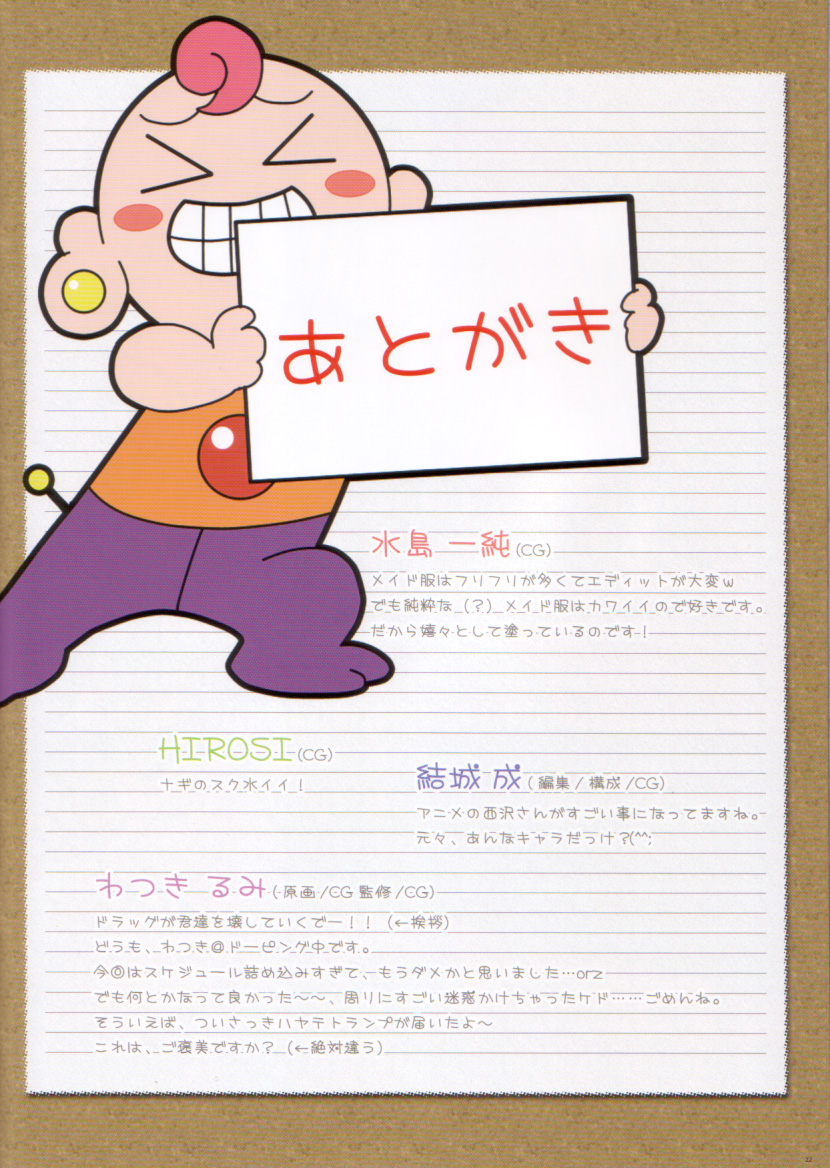 あとがき
水島 一純(CG)
メイド服はフリフリが多くてエディットが大変w
でも純粋な（？）メイド服はカワイイので好きです。
だから嬉々として塗っているのです！
HIROSI(CG)
ナギのスク水イイ！
結城 成(編集/構成/CG)
アニメの西沢さんがすごい事になってますね。
元々、あんなキャラだっけ?(^^;
わつき るみ(原画/CG監修/CG)
ドラッグが君達を壊していくでー！！（←挨拶）
どうも、わつき@ドーピング中です。
今◎はスケジュール詰め込みすぎて、もうダメかと思いました…orz
でも何とかなって良かった〜〜、周りにすごい迷惑かけちゃったケド……ごめんね。
そういえば、ついさっきハヤテトランプが届いたよ〜
これは、ご褒美ですか？（←絶対違う）
22